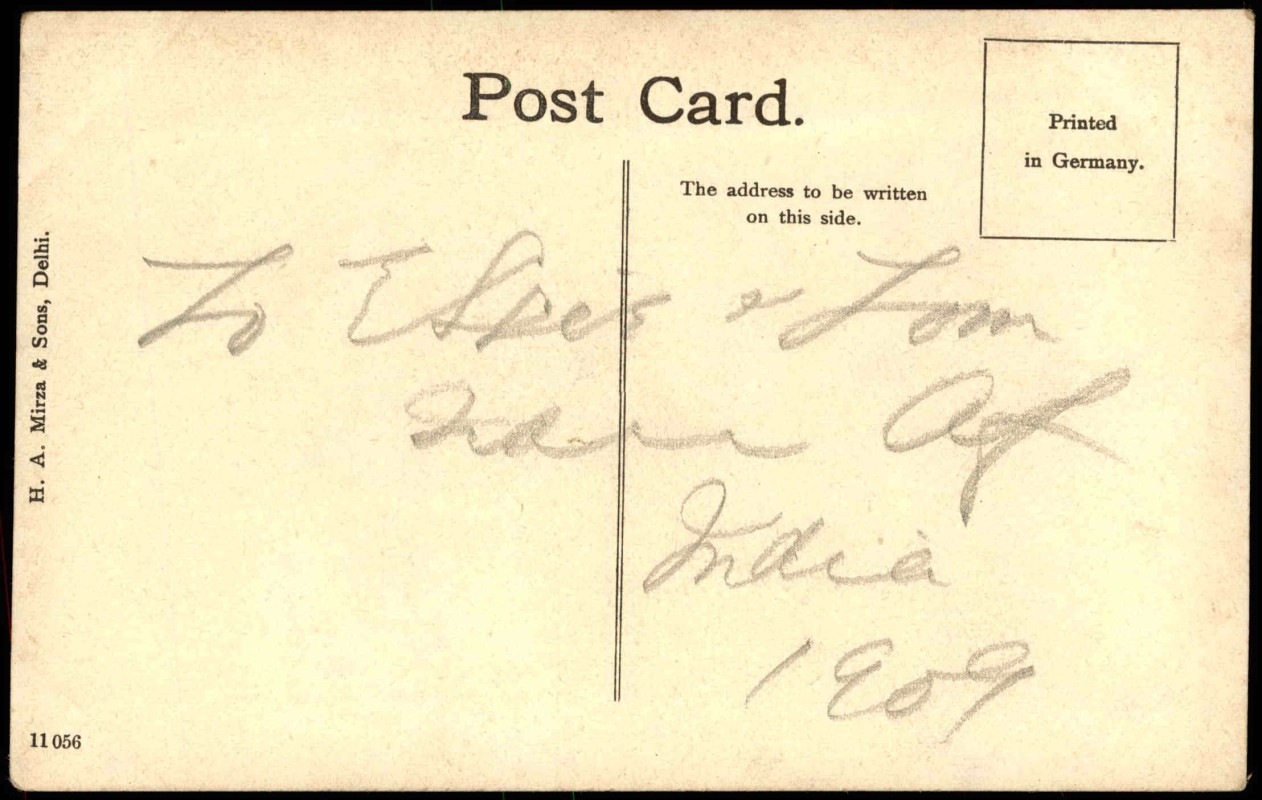 Post Card.
Printed
in Germany.
The address to be written
on this side.
H. A. Mirza & Sons, Delhi.
To & Tom
India
1909
11056